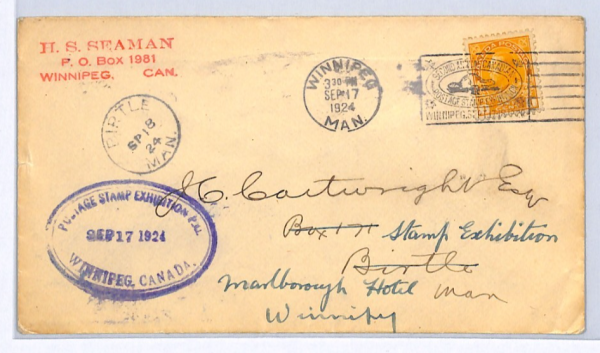 H. S. SEAMAN
P. O. Box 1981
WINNIPEG, CAN.
WINNIPEG
3 30 PM
SEP 17
1924
MAN.
POSTAGE
WINNIPEG
BIRTLE
SP 18
24
MAN.
POSTAGE STAMP EXHIBITION P.O.
SEP 17 1924
WINNIPEG, CANADA.
J. C. Cartwright Esq
Box 171 Stamp Exhibition
Birtle
Marlborough Hotel Man
Winnipeg